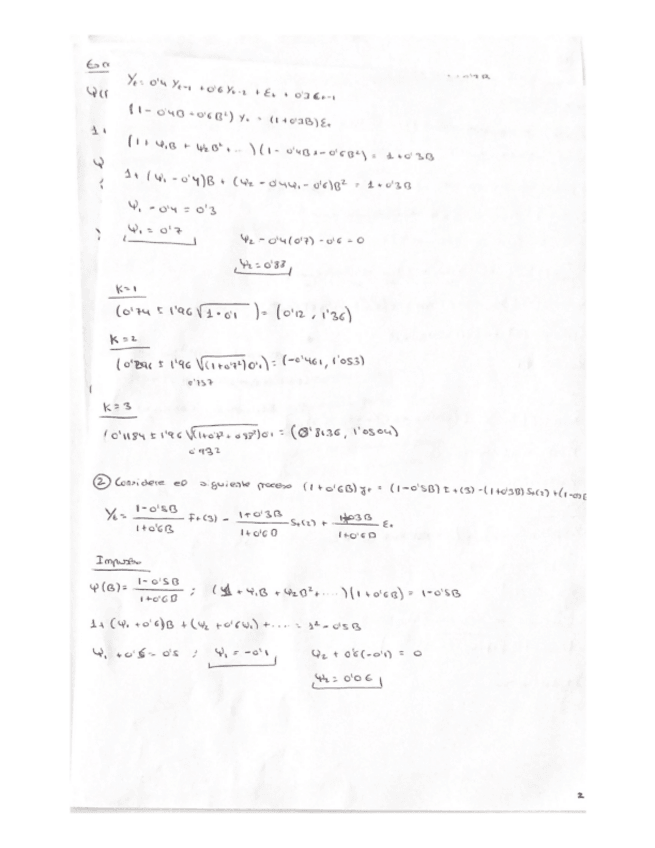 Yₜ = 0'4 Yₜ₋₁ + 0'6 Yₜ₋₂ + Eₜ + 0'3 Eₜ₋₁
(1 - 0'4B - 0'6B²) Yₜ = (1 + 0'3B) Eₜ
1 +
(1 + Ψ₁B + Ψ₂B² + ...) (1 - 0'4B - 0'6B²) = 1 + 0'3B
1 + (Ψ₁ - 0'4)B + (Ψ₂ - 0'4Ψ₁ - 0'6)B² = 1 + 0'3B
Ψ₁ - 0'4 = 0'3
Ψ₁ = 0'7
Ψ₂ - 0'4(0'7) - 0'6 = 0
Ψ₂ = 0'88
K=1
(0'74 ± 1'96 √1·0'1) = (0'12, 1'36)
K=2
(0'296 ± 1'96 √(1+0'7²)0'1) = (-0'461, 1'053)
0'757
K=3
(0'1184 ± 1'96 √(1+0'7²+0'88²)0'1 = (0'8136, 1'0504)
0'932
② Considere el siguiente proceso (1+0'6B) yₜ = (1-0'5B) Iₜ(3) - (1+0'3B) Sₜ(2) + (1-0'3B
Yₜ = 1-0'5B / 1+0'6B Iₜ(3) - 1+0'3B / 1+0'6B Sₜ(2) + 1+0'3B / 1+0'6B Eₜ
Impulso
Ψ(B) = 1-0'5B / 1+0'6B ; (1 + Ψ₁B + Ψ₂B² + ....) (1+0'6B) = 1-0'5B
1 + (Ψ₁ + 0'6)B + (Ψ₂ + 0'6Ψ₁) + .... = 1 - 0'5B
Ψ₁ + 0'6 = 0'5 ; Ψ₁ = -0'1
Ψ₂ + 0'6(-0'1) = 0
Ψ₂ = 0'06
2